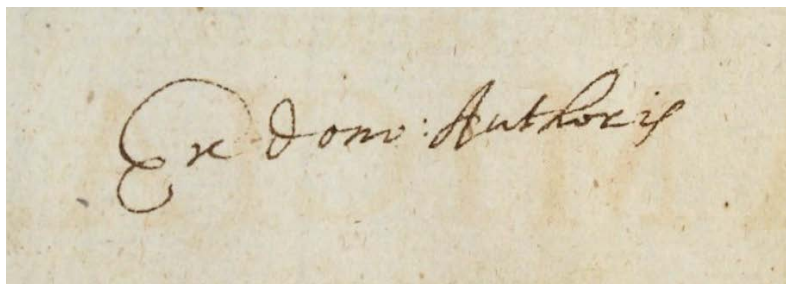 Ex dono: Authoris